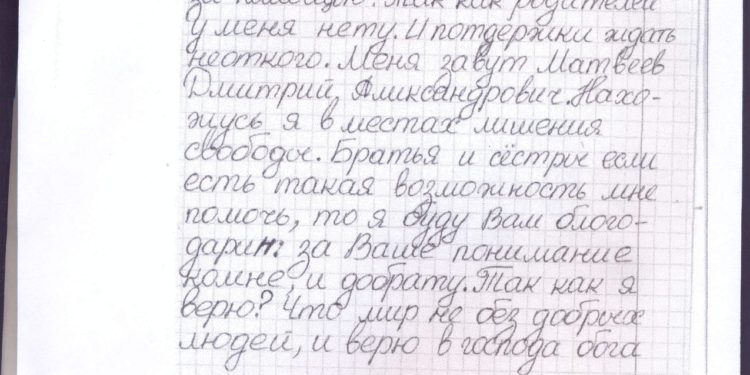 за помощью. Так как родителей
у меня нету. И потдержки ждать
неоткого. Меня завут Матвеев
Дмитрий, Аликсандрович. Нахо-
жусь я в местах лишения
свободы. Братья и сёстры если
есть такая возможность мне
помочь, то я буду Вам блого-
дарин: за Ваше понимание
комне, и добрату. Так как я
верю? Что мир не без добрых
людей, и верю в господа бога